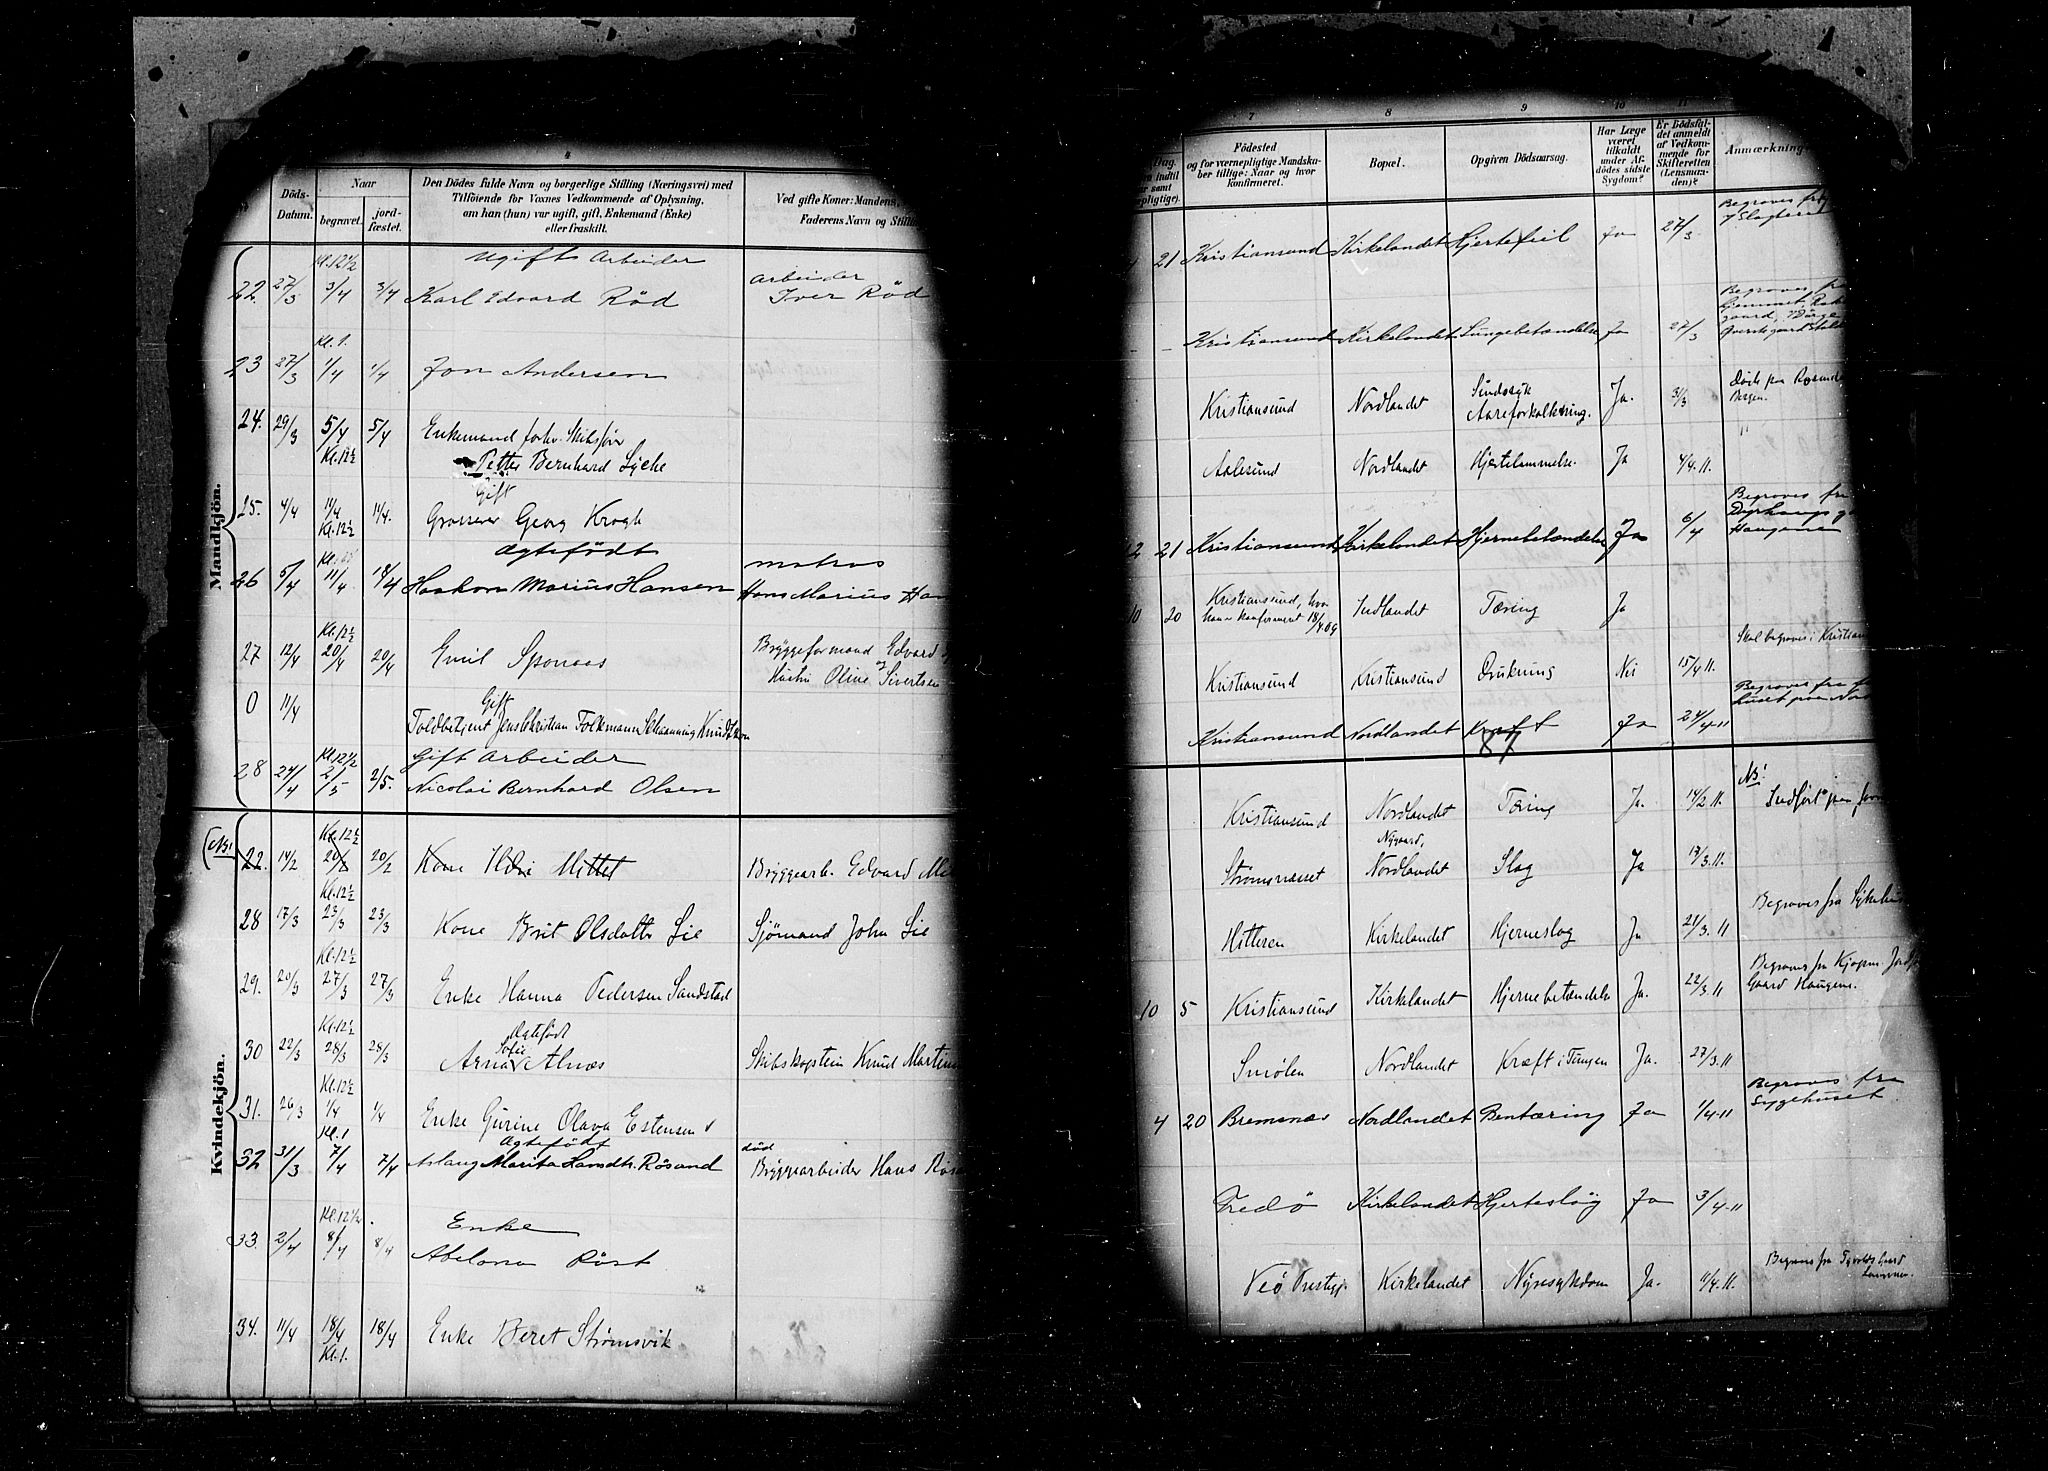 4
Döds-
Datum.
Naar
begravet.
jord-
fæstet.
Den Dödes fulde Navn og borgerlige Stilling (Næringsvei) med
Tilföiende for Voxnes Vedkommende af Oplysning,
om han (hun) var ugift, gift, Enkemand (Enke)
eller fraskilt.
Ved gifte Koner: Mandens,
Faderens Navn og Still
Mandkjön.
Kl. 12 1/2 ugift Arbeider arbeider
22. 27/3 3/4 3/4 Karl Edvard Röd Iver Röd
Kl. 1.
23 27/3 1/4 1/4 Jon Andersen
24. 29/3 5/4 5/4 Enkemand forhv. Skibsfører
Kl. 12 1/2 Petter Bernhard Lycke
Gift
25. 4/4 11/4 11/4. Grosserer Georg Krogh
Kl. 12 1/2
Ægtefödt matros
26 5/4 11/4 18/4 Haakon Marius Hansen Hans Marius Han
Kl. 12 1/2
27 12/4 20/4 20/4 Emil Sponaas Bryggeformand Edvard
Hustru Oline Sivertsen
Gift
0 11/4
Toldbetjent Jens Christian Folkmann Schaanning Knudtzon
Kl. 12 1/2 Gift Arbeider
28 24/4 2/5 2/5. Nicolai Bernhard Olsen
Kvindekjön.
Kl. 12 1/2
(NB! 22. 14/2 20/2 20/2 Kone Mittet Bryggearb. Edvard Mi
Kl. 12 1/2
28 17/3 23/3 23/3 Kone Brit Olsdatter Lie Sjömand John Lie
Kl. 12 1/2
29. 20/3 27/3 27/3 Enke Hanna Pedersen Sandstad
Kl. 12 1/2 Ægtefödt
Sofie
30 22/3 28/3 28/3 Arna Alnæs Skibskaptein Knud Martin
Kl. 12 1/2
31. 26/3 1/4 1/4 Enke Gurine Olava Estensen
Kl. 1 Ægtefödt död
32 31/3 7/4 7/4 Aslaug Marita Hansdtr. Rösand Bryggearbeider Hans Rösa
Kl. 12 1/2 Enke
33. 2/4 8/4 8/4 Abelona Röst
34. 11/4 18/4 18/4 Enke Beret Strømsvik
Kl. 1.
7 8 9 10 11
Dag.
indtil
samt
pligtige).
Födested
og for værnepligtige Mandska-
ber tillige: Naar og hvor
konfirmeret.
Bopæl.
Opgiven Dödsaarsag.
Har Læge
været
tilkaldt
under Af-
dödes sidste
Sygdom?
Er Dödsfal-
det anmeldt
af Vedkom-
mende for
Skifteretten
(Lensman-
den)?
Anmærkning
Begraves fra
21 Kristiansund Kirkelandet Hjertefeil Ja 27/3
Begraves fra
- - Kristiansund Kirkelandet Lungebetændelse Ja 27/3
Kristiansund Nordlandet Sindssyk Aareforkalkning. Ja. 31/3 Døde paa Rosenda
Bergen.
Aalesund Nordlandet Hjertelammelse. Ja 4/4.11. "
Begraves fra
12 21 Kristiansund Kirkelandet Hjernebetændelse Ja 6/4 Haugenes
10 20 Kristiansund, hvor
han er konfirmeret 18/4.09 Indlandet Tæring Ja
Kristiansund Kristiansund Drukning Nei 15/4 11. Skal begraves i Kristian
Begraves fra
Kristiansund Nordlandet Kræft Ja 24/4-11 huset paa Nord
87
NB!
Kristiansund Nordlandet Tæring Ja. 14/2 11. Indført paa
Strømsnæset Nygaard, Nordlandet Slag Ja 17/3.11.
Hitteren Kirkelandet Hjerneslag Ja 21/3.11 Begraves fra Sykehu
10 5 Kristiansund Kirkelandet Hjernebetændelse Ja. 22/3.11 Begraves fra Kjøpm.
Gaard Haugene.
Smölen Nordlandet Kræft i Tungen Ja. 27/3.11
4 20 Bremsnæs Nordlandet Bentæring Ja 1/4-11 Begraves fra
Sygehuset
Fredö Kirkelandet Hjerteslag Ja 3/4-11
Veö Prestegj. Kirkelandet Nyresykdom Ja. 11/4.11. Begraves fra